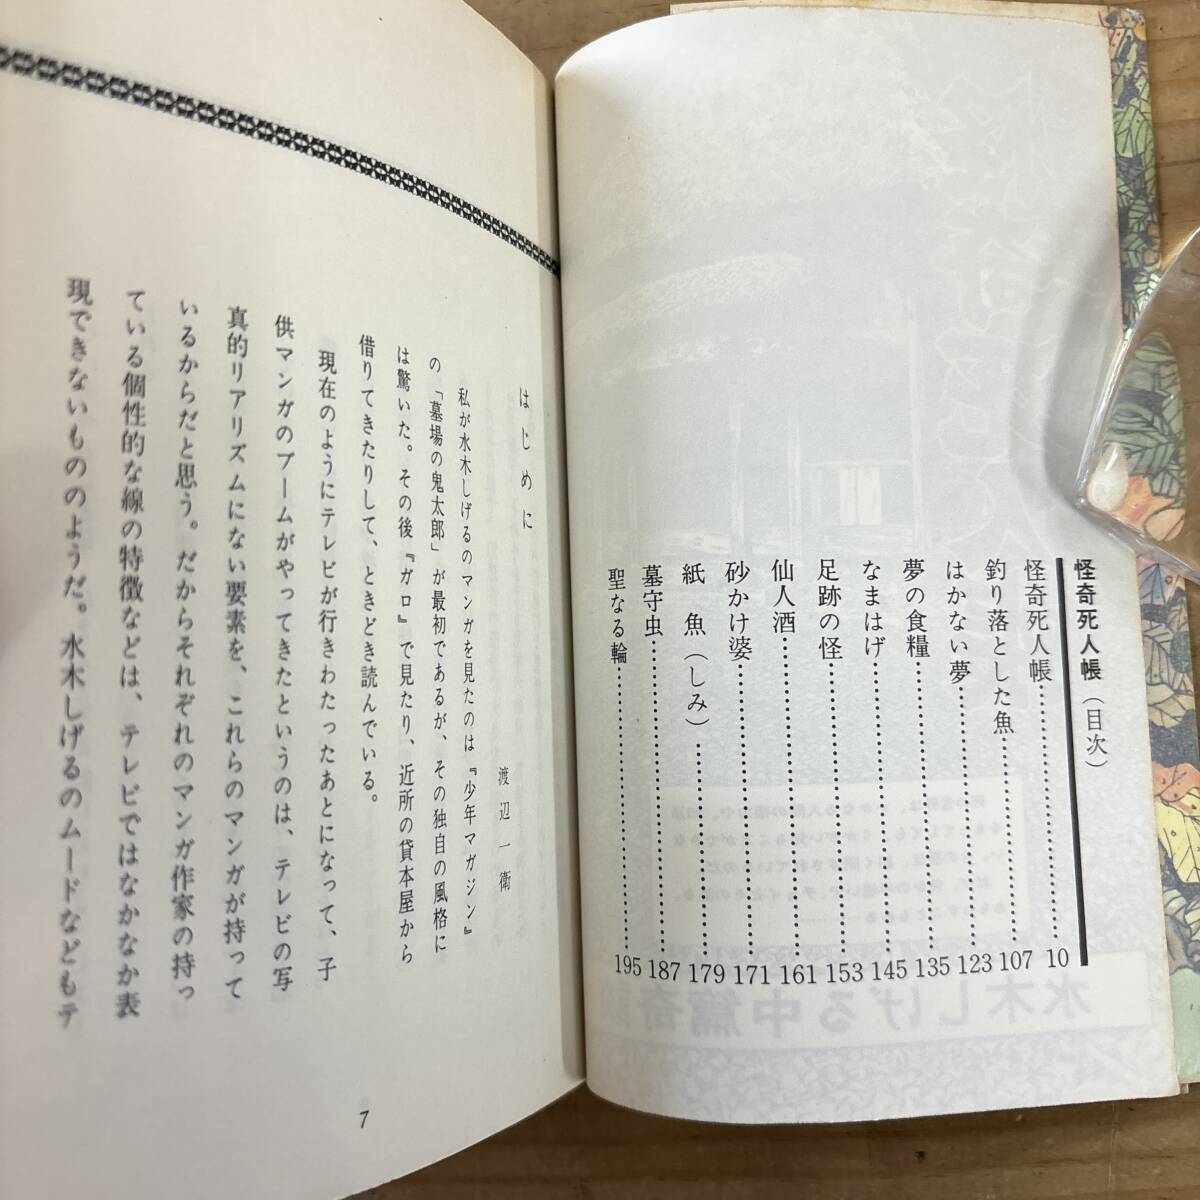 怪奇死人帳（目次）
怪奇死人帳……10
釣り落とした魚……107
はかない夢……123
夢の食糧……135
なまはげ……145
足跡の怪……153
仙人酒……161
砂かけ婆……171
紙魚（しみ）……179
墓守虫……187
聖なる輪……195
はじめに
渡辺一衛
私が水木しげるのマンガを見たのは『少年マガジン』
の「墓場の鬼太郎」が最初であるが、その独自の風格に
は驚いた。その後『ガロ』で見たり、近所の貸本屋から
借りてきたりして、ときどき読んでいる。
現在のようにテレビが行きわたったあとになって、子
供マンガのブームがやってきたというのは、テレビの写
真的リアリズムにない要素を、これらのマンガが持って
いるからだと思う。だからそれぞれのマンガ作家の持っ
ている個性的な線の特徴などは、テレビではなかなか表
現できないもののようだ。水木しげるのムードなどもテ
7